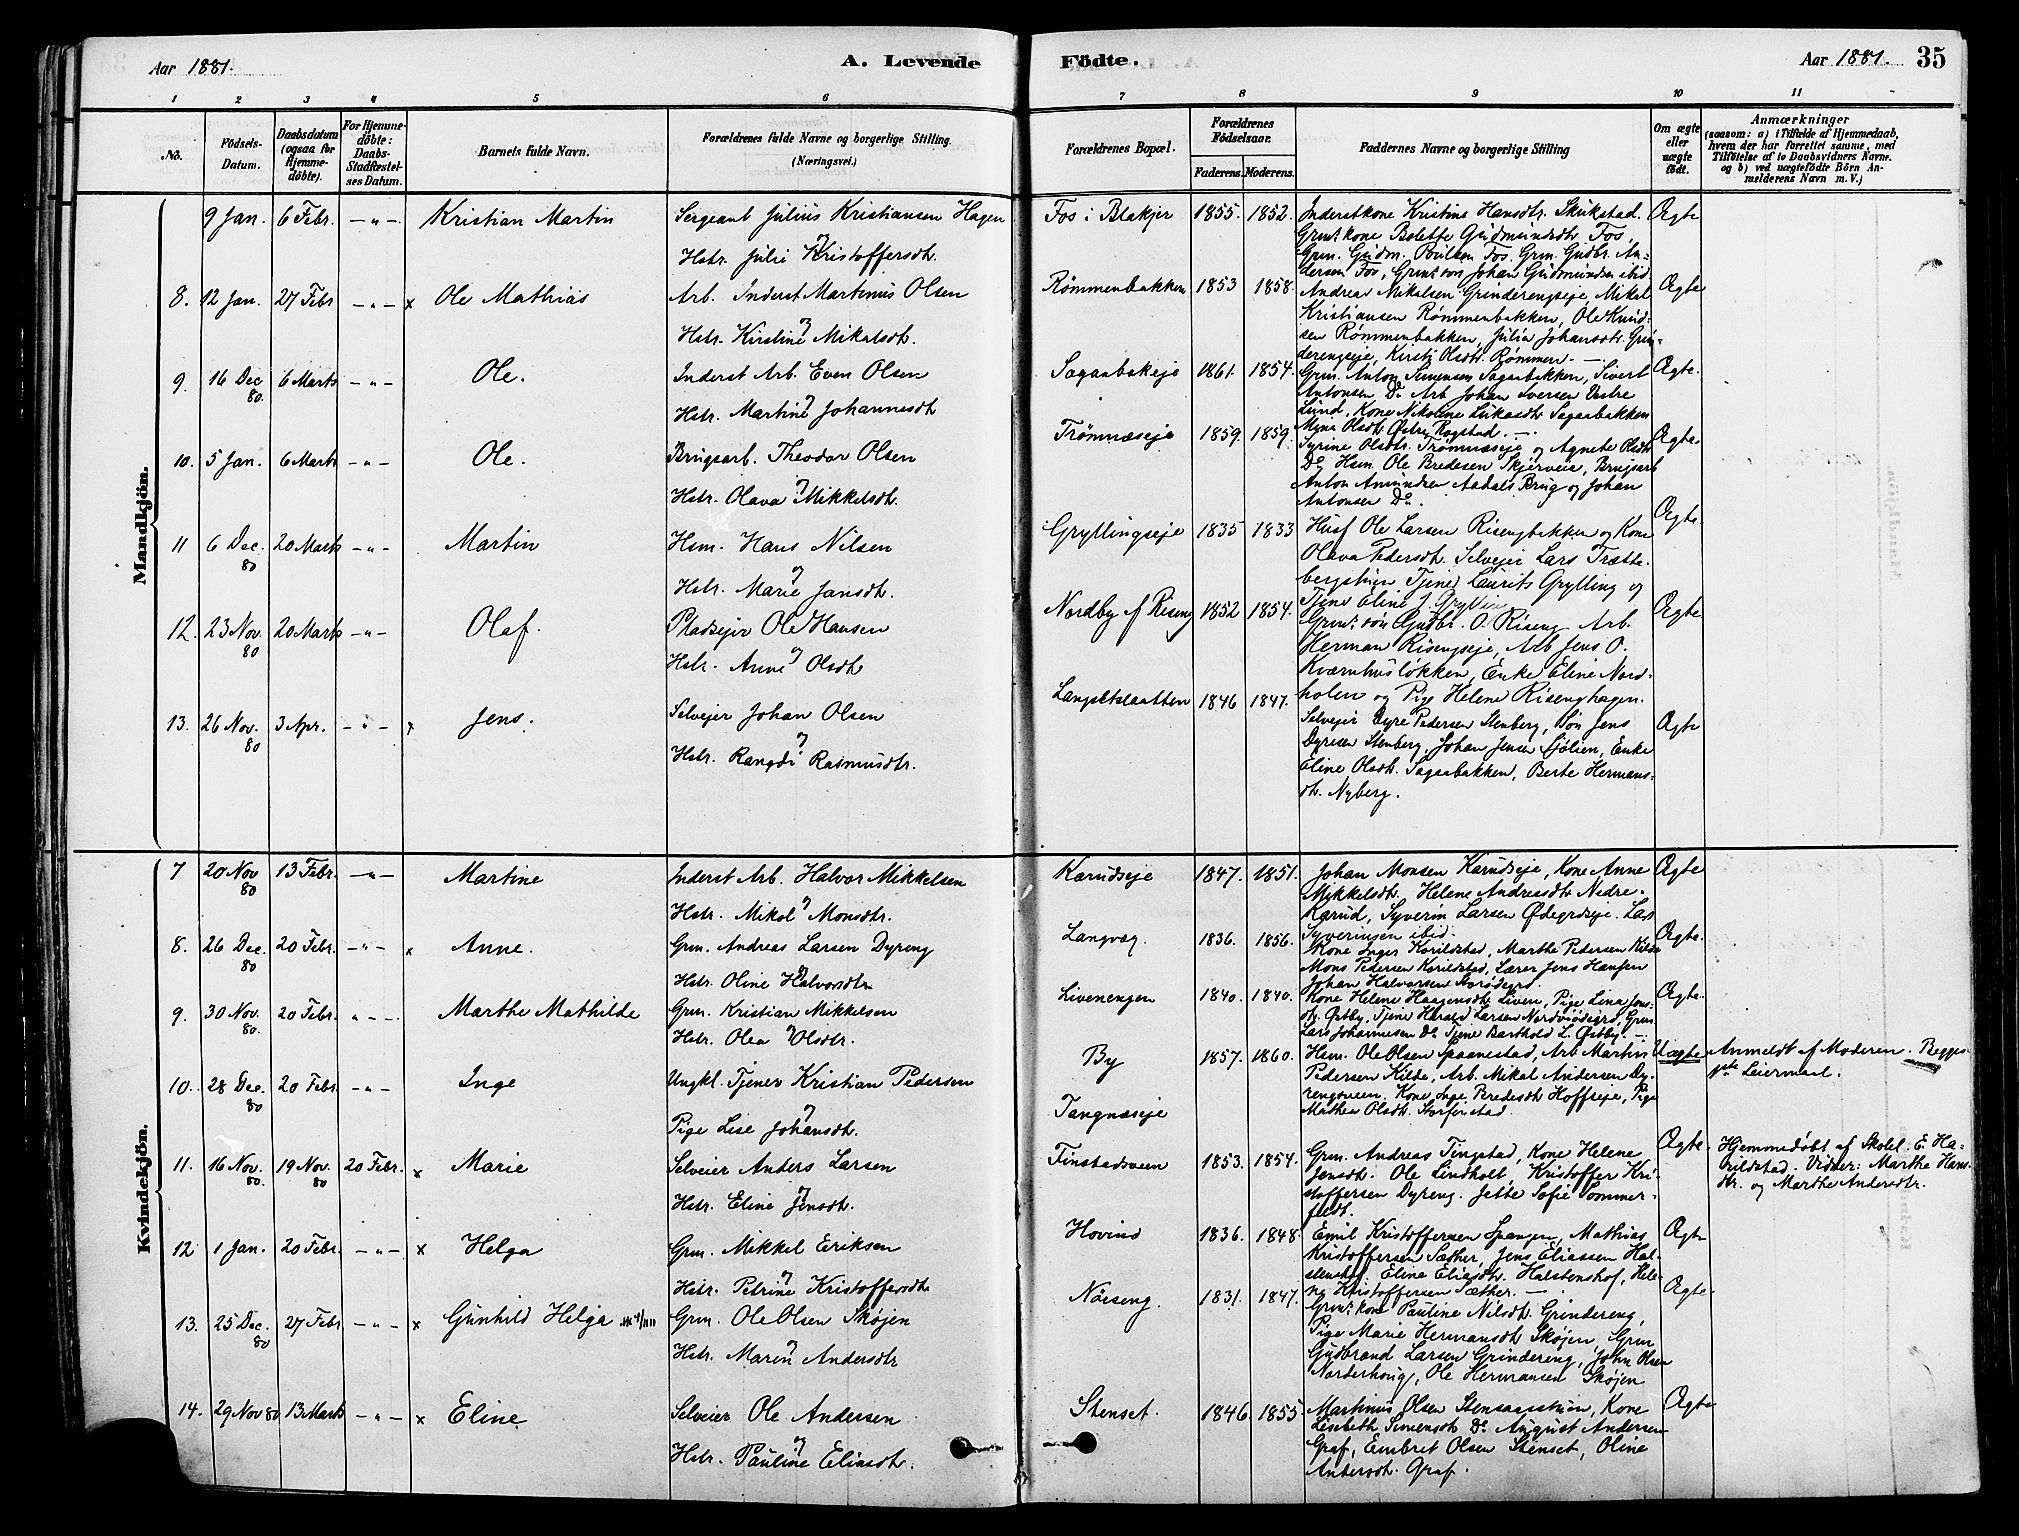 Aar 1881.
A. Levende
Födte.
Aar 1881.
35
1 2 3 4 5 6 7 8 9 10 11
No.
Födsels-Datum.
Daabsdatum (ogsaa for Hjemme-döbte).
For Hjemme-döbte: Daabs-Stadfæstel-ses Datum.
Barnets fulde Navn.
Forældrenes fulde Navne og borgerlige Stilling
(Næringsvei.)
Forældrenes Bopæl.
Forældrenes Födselsaar.
Faderens. Moderens.
Faddernes Navne og borgerlige Stilling
Om ægte eller uægte födt.
Anmærkninger
(saasom: a) i Tilfælde af Hjemmedaab,
hvem der har forrettet samme, med
Tilföielse af to Daabsvidners Navne.
og b) ved uægtefödte Börn An-
melderens Navn m. V.)
Mandkjön.
9 Jan. 6 Febr. — " — Kristian Martin
Sergeant Julius Kristiansen Hagen
Hstr. Julie Kristoffersdt.
Fos i Blakjer 1855. 1852.
Inderstkone Kristine Hansdtr. Skukstad.
Grmskone Bolette Gudmundsdtr Fos,
Grm. Gudm. Poulsen Fos. Grm. Gudbr. An-
dersen Fos, Grms søn Johan Gudmundsen ibid
Ægte
8. 12 Jan. 27 Febr — " — x Ole Mathias
Arb. Inderst Martinus Olsen
og
Hstr. Kirstine Mikalsdt.
Rømmenbakken 1853 1858.
Andreas Mikalsen Grinderengseje, Mikal
Kristiansen Rømmenbakken, Ole Knud-
sen Rømmenbakken, Julia Johansdtr. Grin-
derengseje, Kirsti Olsdtr. Rømmen. —
Ægte
9. 16 Dec 80. 6 Marts — " — Ole.
Inderst Arb. Even Olsen
og
Hstr. Martine Johannesdt
Sagaabakeje 1861. 1854.
Grm. Anton Simensen Sagaabakken, Sivert
Antonsen Do. Arb. Johan Iversen Vestre
Lund, Kone Nikoline Lukasdtr Sagaabakken
Mina Olsdt. Østre Rogstad. —
Ægte.
10. 5 Jan. 6 Marts — " — Ole.
Brugsarb. Theodor Olsen
og
Hstr. Olava Mikkelsdt.
Trømnæseje 1859. 1859.
Syrine Olsdtr. Trømnæseje og Agnete Olsdtr
Do, Hsm. Ole Bredesen Skjerveie, Brugsarb
Anton Amundsen Aadals Brug og Johan
Antonsen Do.
Ægte.
11 6 Dec. 80 20 Marts — " — Martin
Hsm. Hans Nilsen
og
Hstr. Marie Jansdt.
Gryllingseje 1835 1833
Husf. Ole Larsen Risengbakken og Kone
Olava Pedersdt. Selvejer Lars Trætte-
bergstuen Tjener Laurits Grylling og
Tjene Eline J. Grylling
Ægte.
12. 23 Nov. 80 20 Marts — " — Olaf.
Pladsejer Ole Hansen
og
Hstr. Anne Olsdt
Nordby af Riseng 1852 1854.
Grms søn Gudbr. O. Riseng. Arb.
Herman Risengseje, Arb Jens O.
Kværnhusløkken, Enke Eline Nord-
holen og Pige Helene Risenghagen.
Ægte
13. 26 Nov. 80 3 Apr. — " — x Jens.
Selvejer Johan Olsen
og
Hstr. Rangdi Rasmusdtr.
Langsetslaatten 1846 1847.
Selvejer Dyre Pedersen Stenberg, Søn Jens
Dyresen Stenberg. Johan Jensen Sjølien, Enke
Eline Olsdt. Sagaabakken, Berte Hermans-
dt. Nyberg.
Ægte
Kvindekjön.
7 20 Nov 80 13 Febr. — " — Martine
Inderst Arb. Halvor Mikkelsen
og
Hstr. Mikol Monsdtr.
Karudseje 1847. 1851.
Johan Monsen Karudseje, Kone Anne
Mikkelsdtr. Helene Andreasdtr Nedre-
Karud, Syverin Larsen Ødegrdseje. Lars
Syveringsen ibid.
Ægte
8. 26 Dec. 80 20 Febr. — " — x Anne.
Grm. Andreas Larsen Dyreng
og
Hstr. Oline Halvorsdtr
Langvæg. 1836. 1856.
Kone Inger Korildstad, Marthe Pedersen Kilde
Mons Pedersen Korildstad, Lærer Jens Hansen
Johan Halvorsen
Ægte.
9. 30 Nov. 80. 20 Febr. " — — . Marthe Mathilde
Grm. Kristian Mikkelsen
og
Hstr. Olea Olsdtr.
Livenengen 1840. 1840.
Kone Helene Haagensdtr. Liven, Pige Lina Jens-
dt. Østby. Tjene Harald Larsen Nordviødegrd, Grm.
Lars Johannesen Do Tjene Barthold L. Østby. —
Ægte.
10. 28 Dec. 80 20 Febr — " — Inge
Ungkl. Tjener Kristian Pedersen
og
Pige Lise Johansdt.
By
Tangnæseje
1857. 1860.
Hsm. Ole Olsen Spaanestad, Arb Martin
Pedersen Kilde, Arb. Mikal Andersen Dy-
rengsveen. Kone Inge Bredesdt Hoffseje, Pige
Mathea Olsdt. Storfinstad.
Uægte
Anmeldt af Moderen. Begges
1ste Leiermaal.
11. 16 Nov. 80. 19 Nov. 80 20 Febr. x Marie
Selveier Anders Larsen
og
Hstr. Eline Jensdt.
Finstadsveen 1853. 1854.
Grm. Andreas Tingstad, Kone Helene
Jensdt. Ole Lindholt, Kristoffer Kri-
stoffersen Dyreng. Jette Sofie Sommer-
feldt.
Ægte.
Hjemmedøbt af Skolel. E. Ha-
rildstad. Vidner: Marthe Hans-
dtr. og Marthe Andersdtr.
12 1 Jan. 20 Febr. — " — x Helga
Grm. Mikkel Eriksen
og
Hstr. Petrine Kristoffersdt
Hovind 1836. 1848.
Emil Kristoffersen Spangen, Mathias
Kristoffersen Sæther, Jens Eliassen Hal-
stenshof. Eline Eliasdtr. Halstenshof, Hele-
ne Kristoffersen Sæther. —
Ægte
13. 25 Dec. 80 27 Febr — " — x Gunhild Helga
Grm. Ole Olsen Skøjen
og
Hstr. Maren Andersdtr
Nørseng. 1831. 1847.
Grms kone Pauline Nilsdt. Grindereng,
Pige Marie Hermansdt Skøjen, Grm
Gudbrand Larsen Grindereng, John Olsen
Norderhoug, Ole Hermansen Skøjen
Ægte.
14. 29 Nov 80 13 Marts — " — x Eline
Selveier Ole Andersen
og
Hstr. Pauline Eliasdt.
Stenset. 1846. 1855
Martinus Olsen Stensaasstuen, Kone
Lisebeth Simensdt Do August Andersen
Graf, Embret Olsen Stenset, Oline
Andersdt. Graf.
Ægte